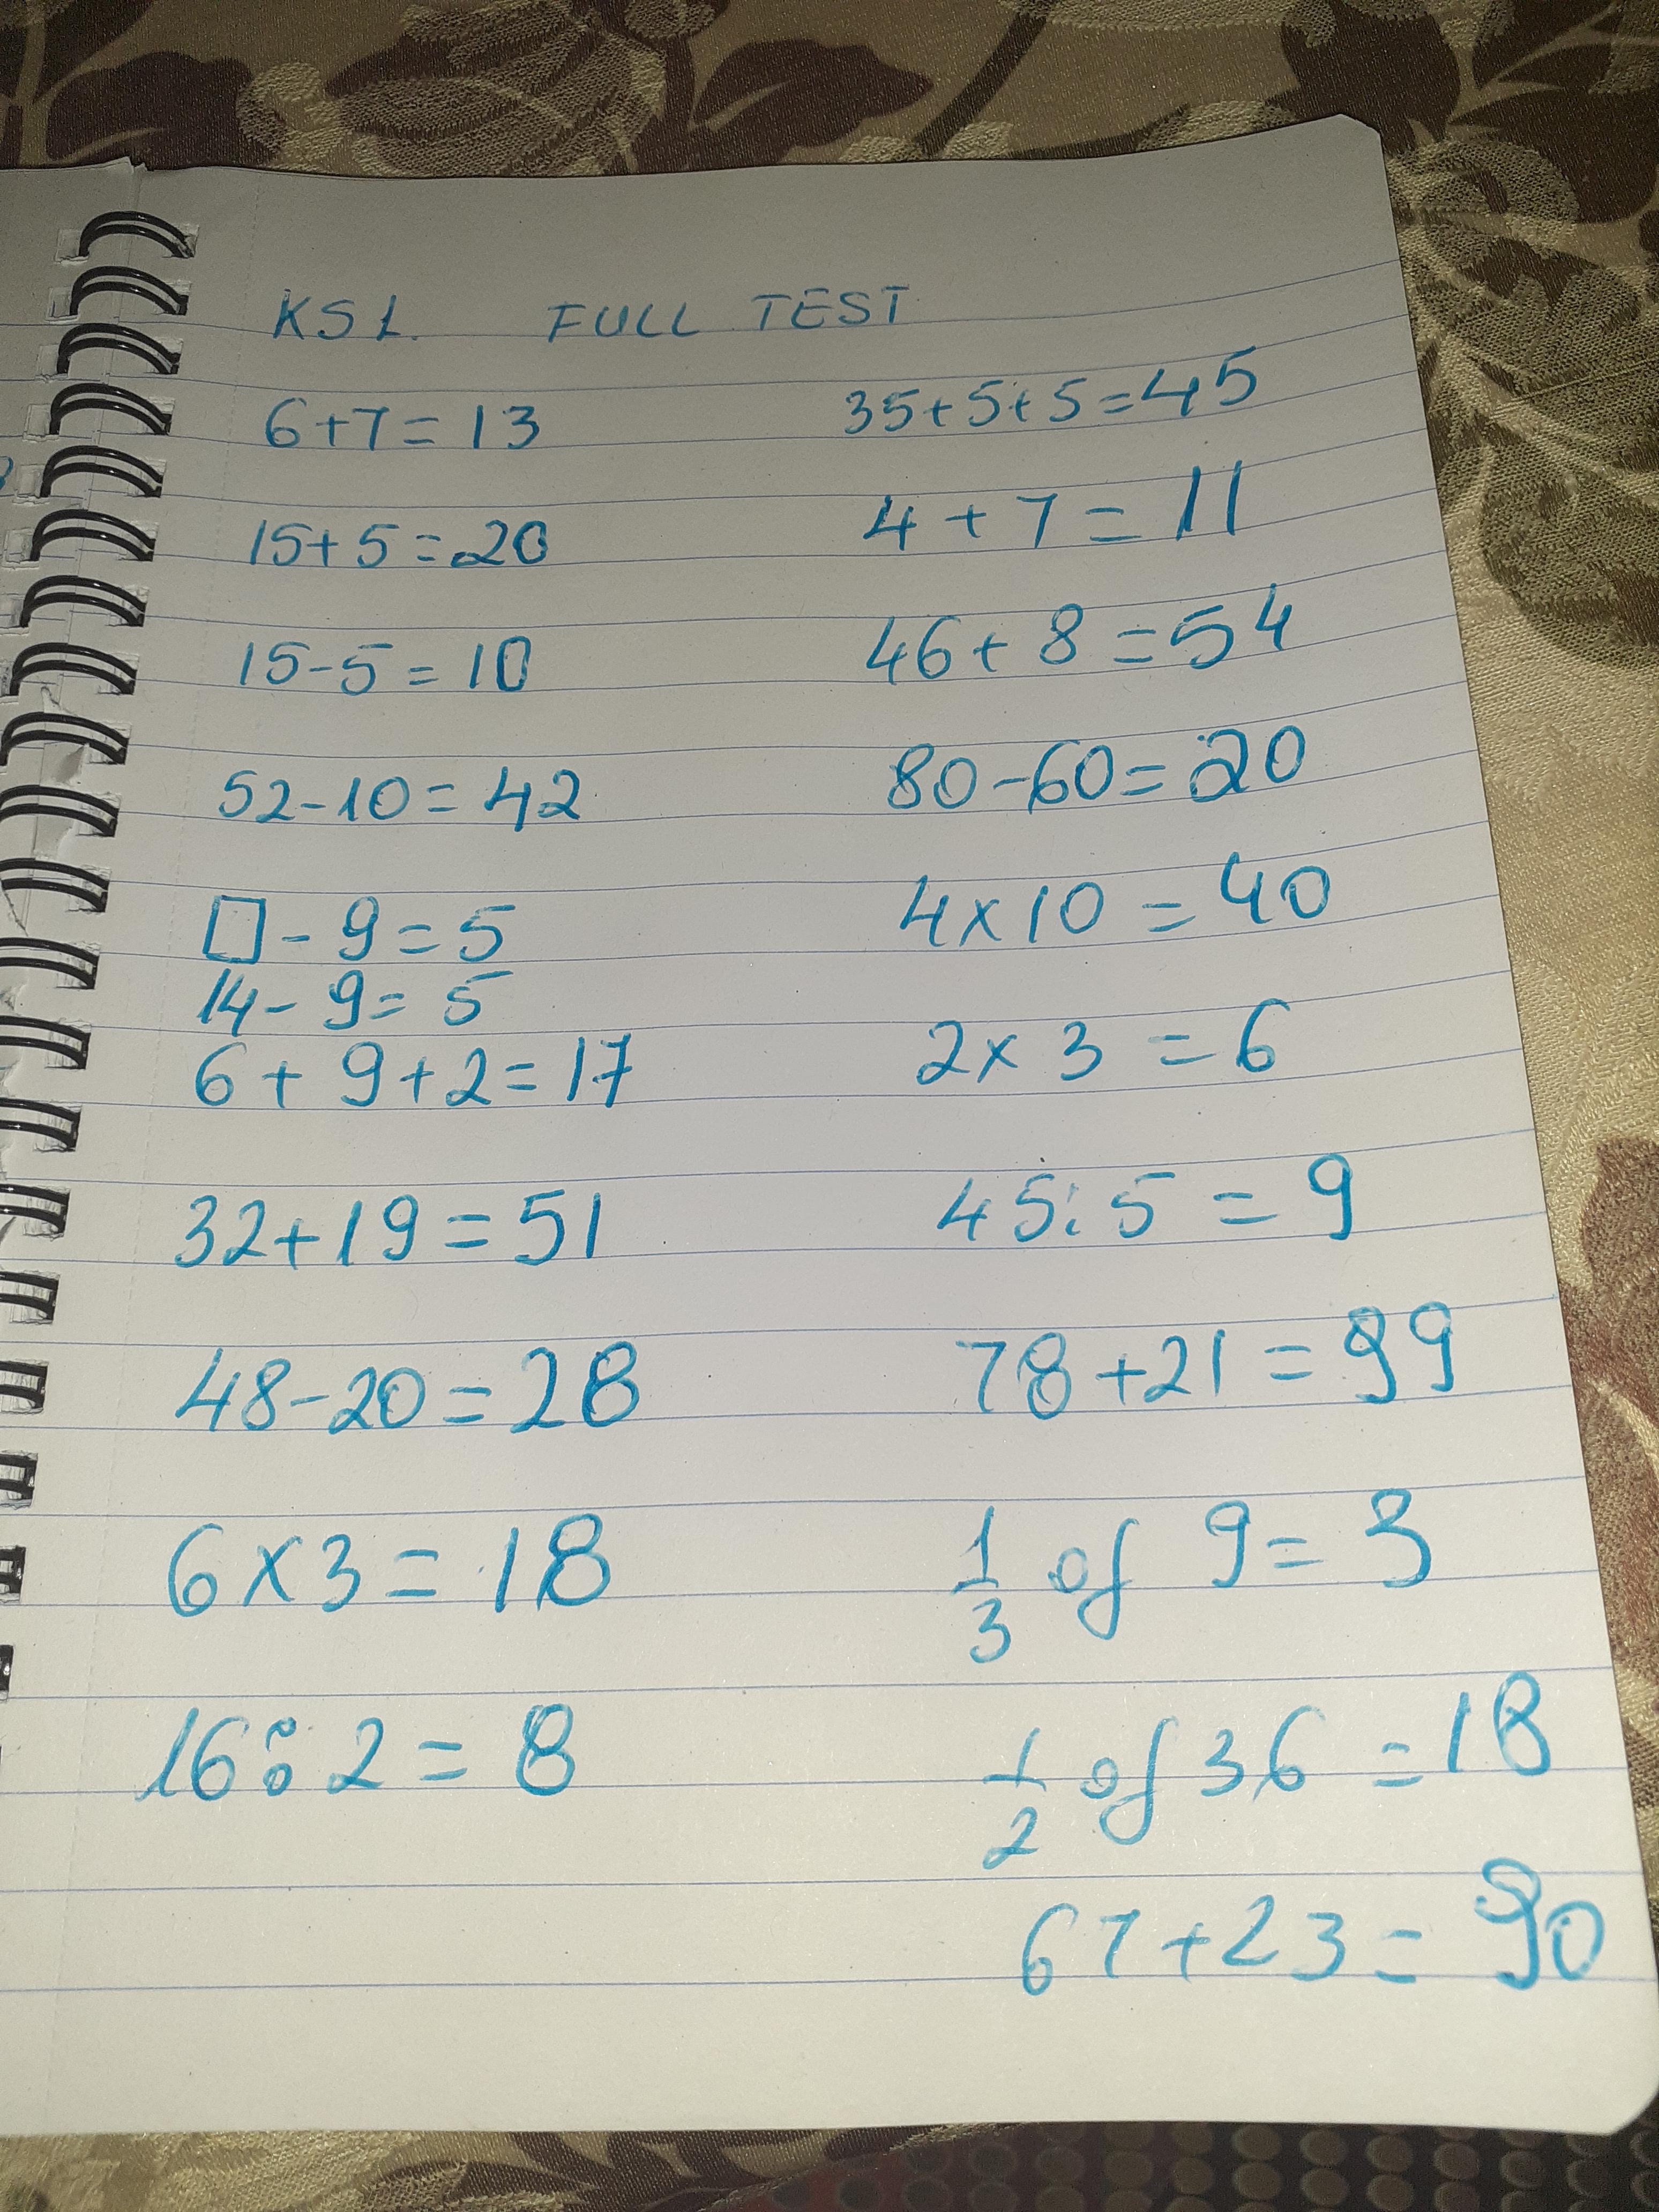 KS1. FULL TEST
6+7=13
15+5=20
15-5=10
52-10=42
□-9=5
14-9=5
6+9+2=17
32+19=51
48-20=28
6x3=18
16:2=8
35+5+5=45
4+7=11
46+8=54
80-60=20
4x10=40
2x3=6
45:5=9
78+21=99
1/3 of 9=3
1/2 of 36=18
67+23=90